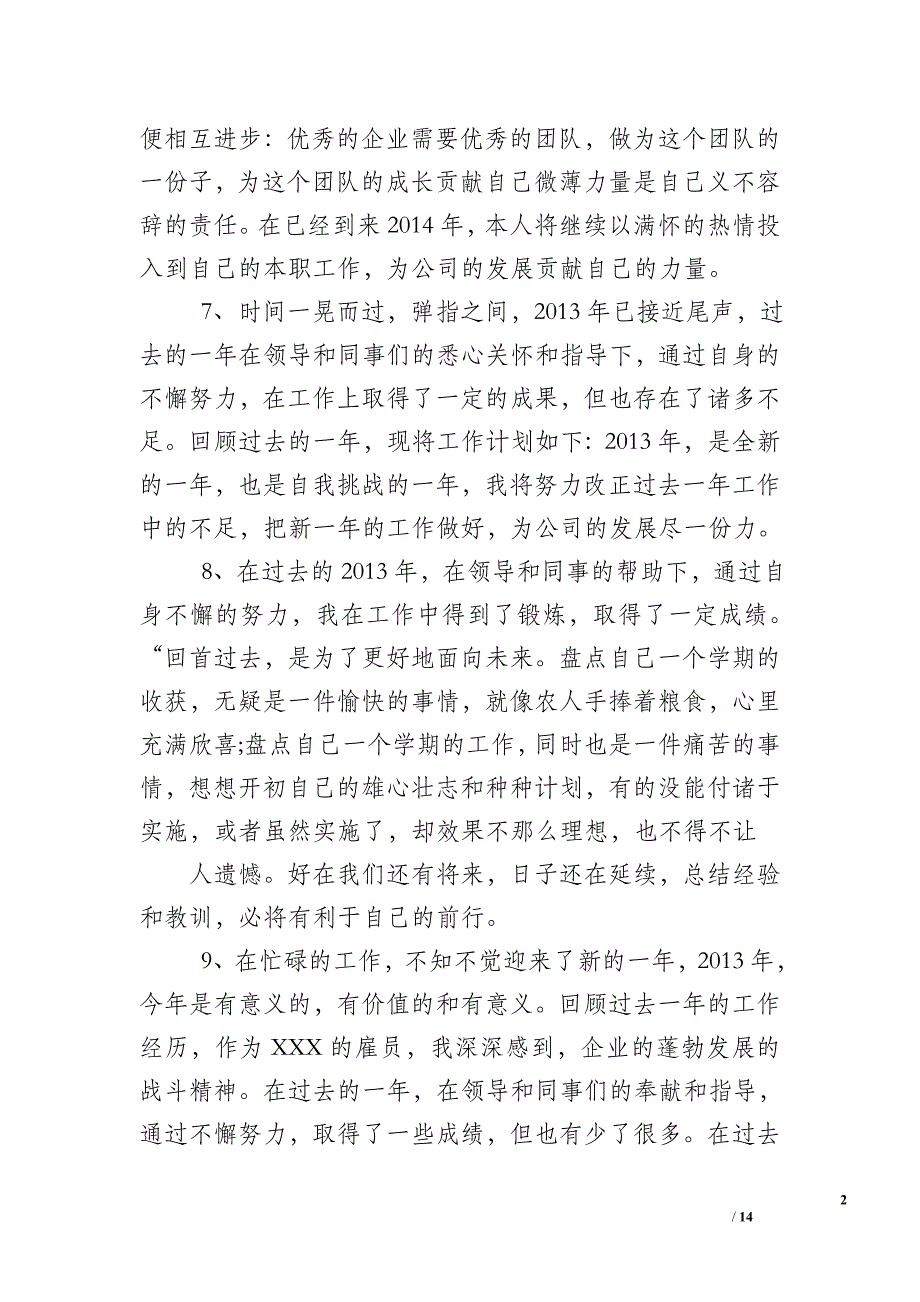 便相互进步：优秀的企业需要优秀的团队，做为这个团队的
一份子，为这个团队的成长贡献自己微薄力量是自己义不容
辞的责任。在已经到来 2014 年，本人将继续以满怀的热情投
入到自己的本职工作，为公司的发展贡献自己的力量。
7、时间一晃而过，弹指之间，2013 年已接近尾声，过
去的一年在领导和同事们的悉心关怀和指导下，通过自身的
不懈努力，在工作上取得了一定的成果，但也存在了诸多不
足。回顾过去的一年，现将工作计划如下：2013 年，是全新
的一年，也是自我挑战的一年，我将努力改正过去一年工作
中的不足，把新一年的工作做好，为公司的发展尽一份力。
8、在过去的 2013 年，在领导和同事的帮助下，通过自
身不懈的努力，我在工作中得到了锻炼，取得了一定成绩。
“回首过去，是为了更好地面向未来。盘点自己一个学期的
收获，无疑是一件愉快的事情，就像农人手捧着粮食，心里
充满欣喜;盘点自己一个学期的工作，同时也是一件痛苦的事
情，想想开初自己的雄心壮志和种种计划，有的没能付诸于
实施，或者虽然实施了，却效果不那么理想，也不得不让
人遗憾。好在我们还有将来，日子还在延续，总结经验
和教训，必将有利于自己的前行。
9、在忙碌的工作，不知不觉迎来了新的一年，2013 年，
今年是有意义的，有价值的和有意义。回顾过去一年的工作
经历，作为 XXX 的雇员，我深深感到，企业的蓬勃发展的
战斗精神。在过去的一年，在领导和同事们的奉献和指导，
通过不懈努力，取得了一些成绩，但也有少了很多。在过去
2
/ 14